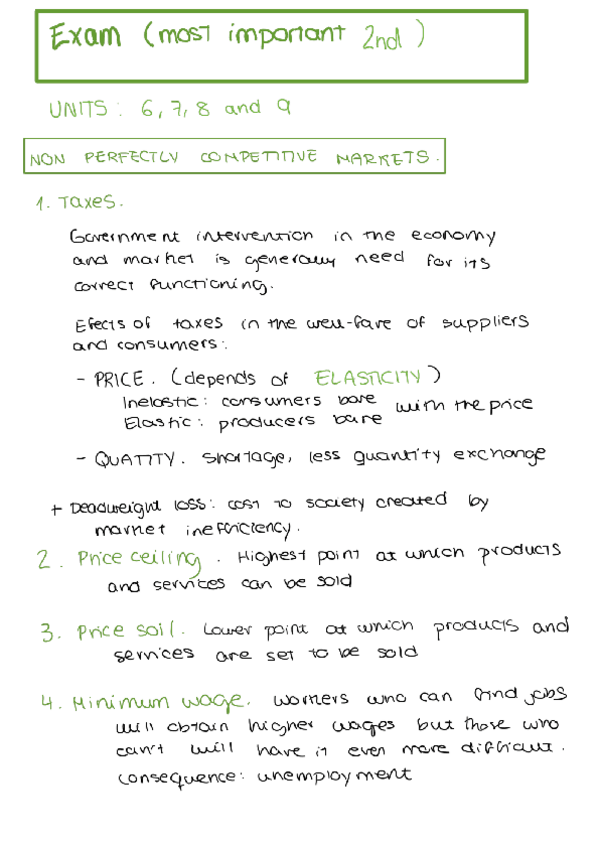 Exam (most important 2nd)
UNITS: 6, 7, 8 and 9
NON PERFECTLY COMPETITIVE MARKETS.
1. Taxes.
Government intervention in the economy
and market is generally need for its
correct functioning.
Efects of taxes in the well-fare of suppliers
and consumers:
- PRICE. (depends of ELASTICITY)
Inelastic: consumers bare with the price
Elastic: producers bare
- QUATITY. shortage, less quantity exchange
+ Deadweight loss: cost to society created by
market inefficiency.
2. Price ceiling. Highest point at which products
and services can be sold
3. Price soil. Lower point at which products and
services are set to be sold
4. Minimum wage. workers who can find jobs
will obtain higher wages but those who
can't will have it even more difficult.
consequence: unemployment